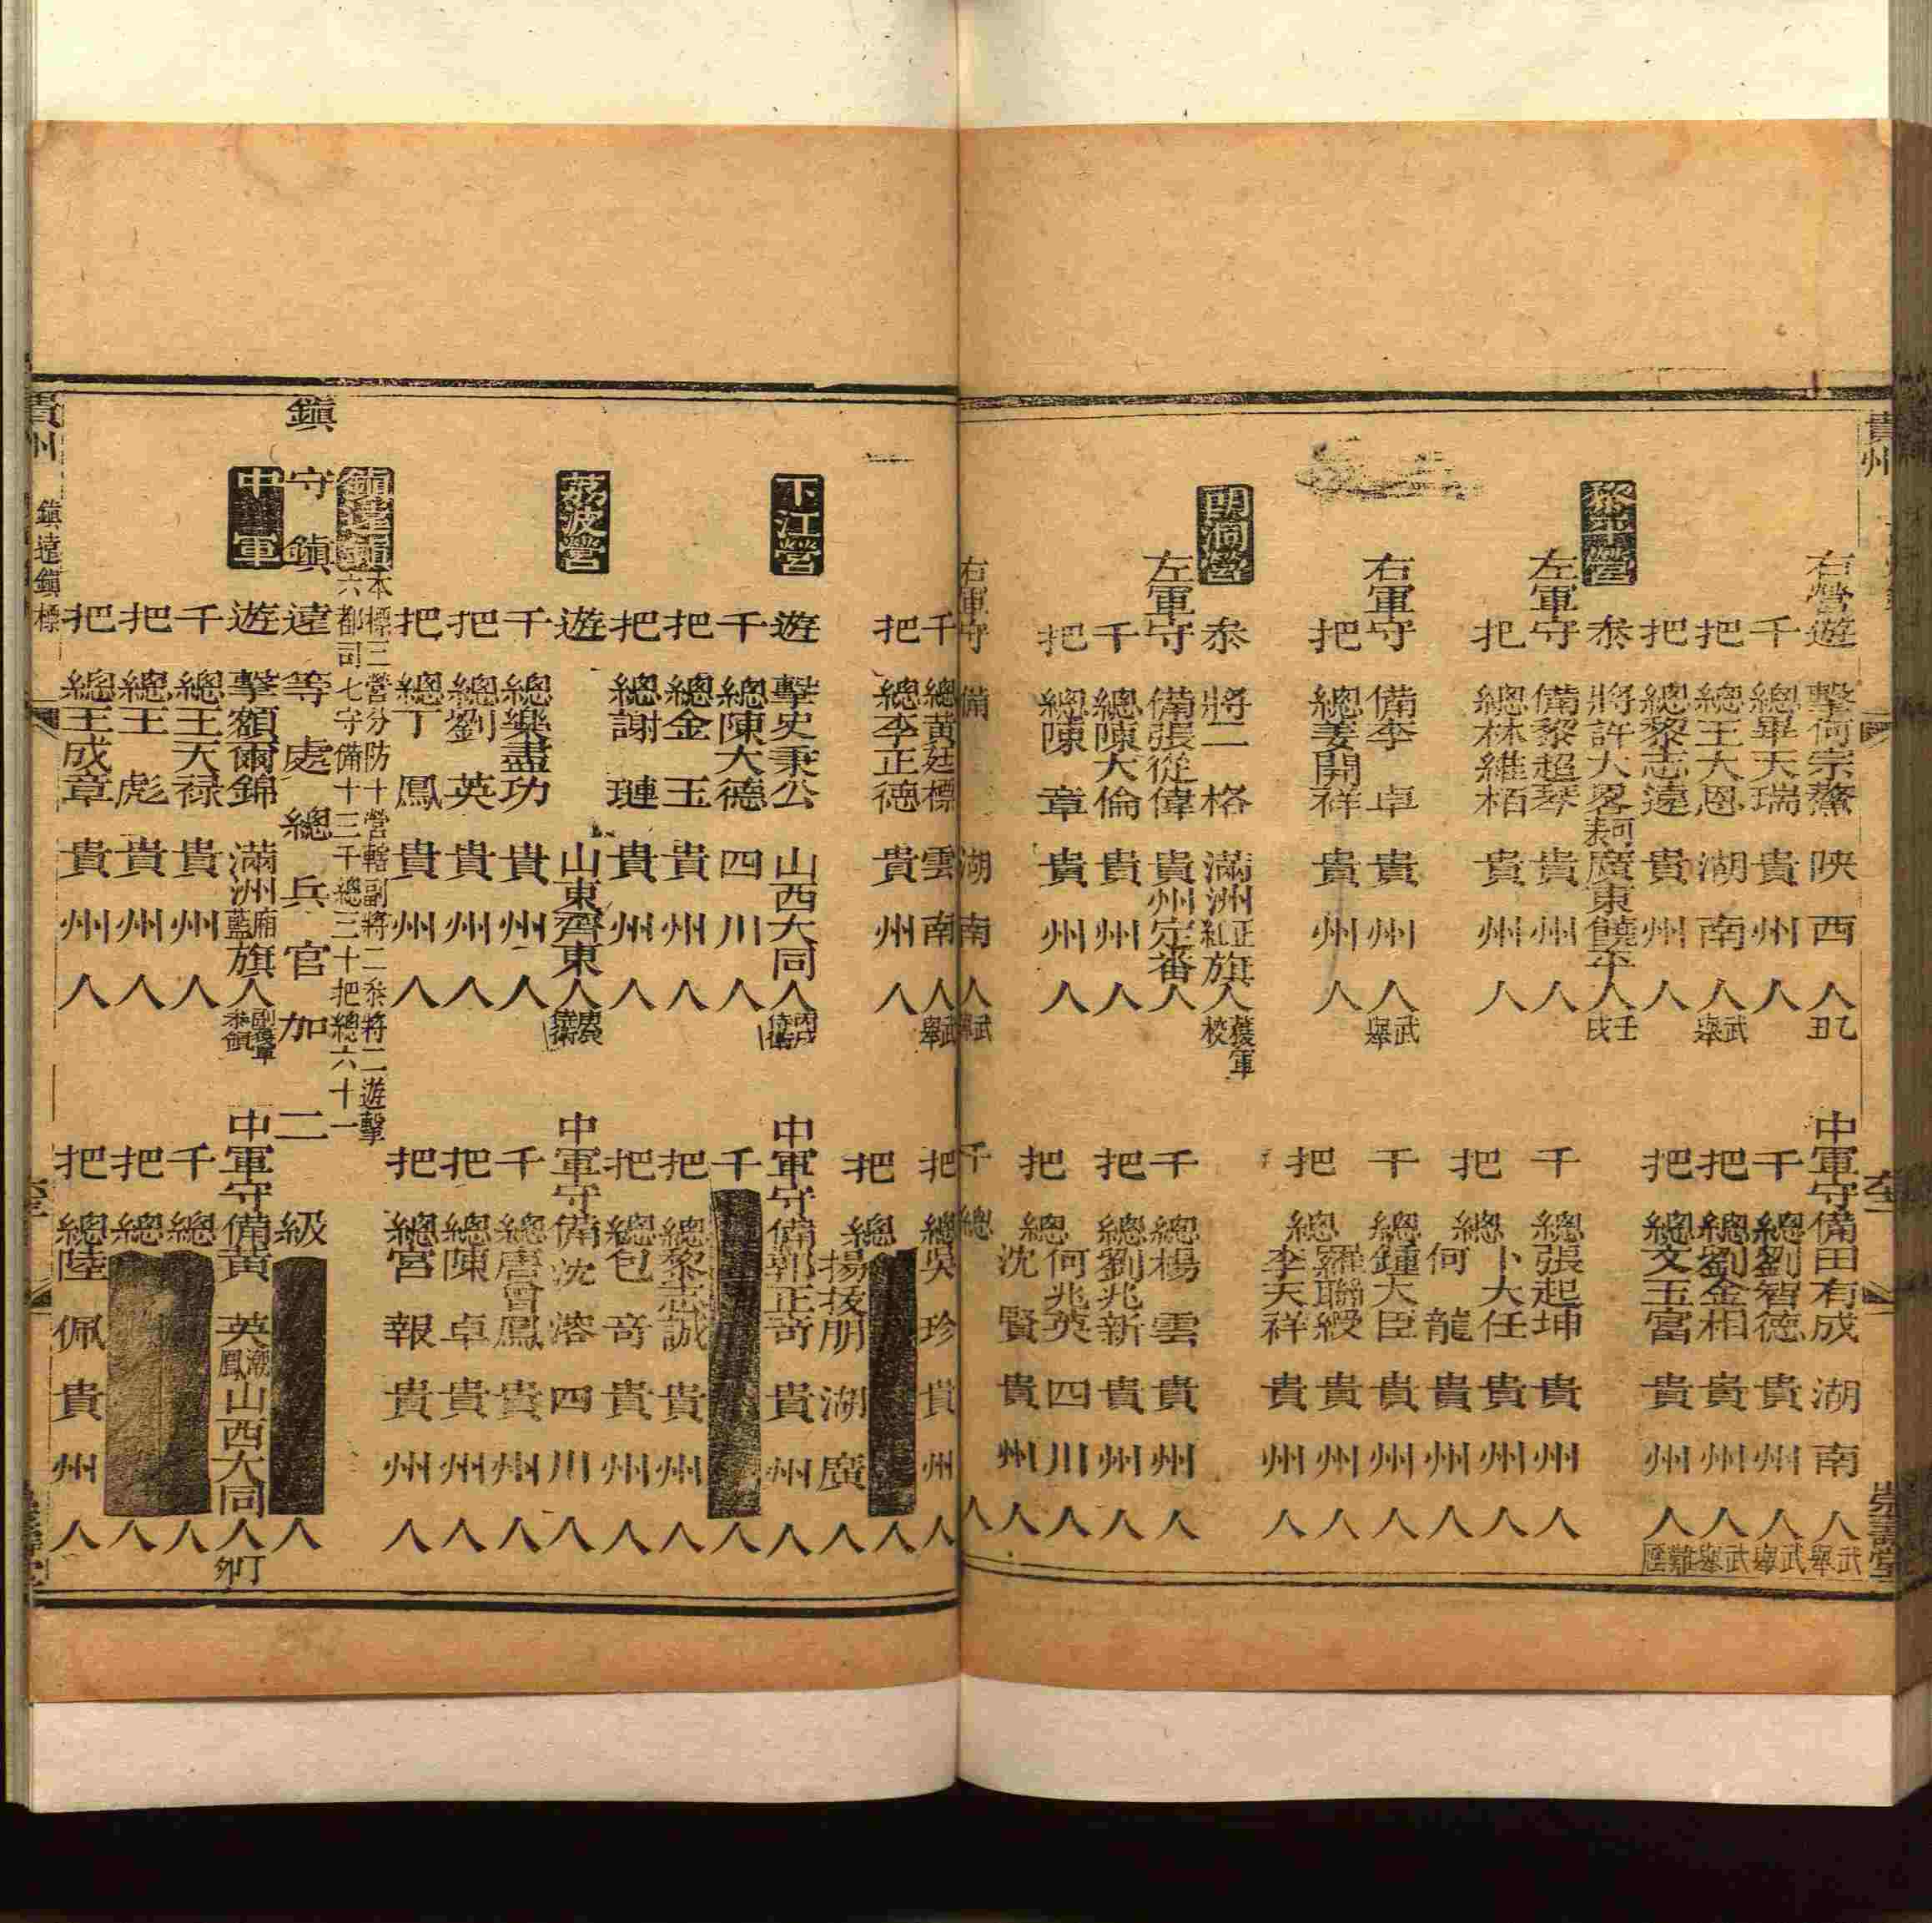 貴州
右營遊擊何宗鰲陝西人乙丑 中軍守備田有成湖南人武舉
千總畢天瑞貴州人 千總劉智德貴州人武舉
把總王大恩湖南人武舉 把總劉金相貴州人武舉
把總黎志遠貴州人 把總文玉富貴州人難廕
黎平營 叅將許大畧廣東饒平人壬戌
左軍守備黎超琴貴州人 千總張起坤貴州人
把總林維栢貴州人 把總卜大任貴州人
何龍貴州人
右軍守備李卓貴州人武舉 千總鍾大臣貴州人
把總姜開祥貴州人 把總羅聯綬貴州人
李天祥貴州人
明洞營 叅將二格滿洲正紅旗人護軍校
左軍守備張從偉貴州定番人 千總楊雲貴州人
千總陳大倫貴州人 把總劉兆新貴州人
把總陳章貴州人 把總何兆英四川人
沈賢貴州人
右軍守備湖南人武舉 千總人
千總黃廷標雲南人武舉 把總吳珍貴州人
把總李正德貴州人 把總人
揚拔朋湖廣人
下江營 遊擊史秉公山西大同人丙戌侍衛 中軍守備郭正奇貴州人
千總陳大德四川人 千人
把總金玉貴州人 把總黎志誠貴州人
把總謝璉貴州人 把總包奇貴州人
荔波營 遊山東齊東人侍衛 中軍守備沈溶四川人
千總樂盡功貴州人 千總唐會鳳貴州人
把總劉英貴州人 把總陳卓貴州人
把總丁鳳貴州人 把總宮報貴州人
鎮遠鎮 本標三營分防十營轄副將二叅將二遊擊
六都司七守備十三千總三十把總六十一
鎮守鎮遠等處總兵官加二級人
中軍 遊擊額爾錦滿洲廂藍旗人副護軍叅領 中軍守備黃英山西大同人丁卯
千總王天祿貴州人 千總人
把總王彪貴州人 把總人
把總王成章貴州人 把總陸佩貴州人
貴州 鎮遠鎮標